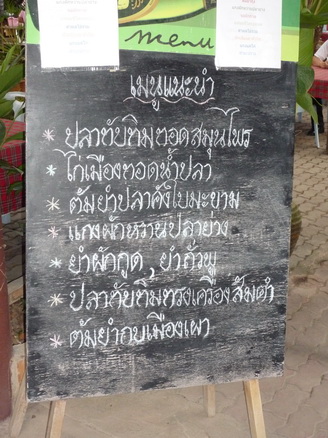 menu
เมนูแนะนำ
* ปลาทับทิมทอดสมุนไพร
* ไก่เมืองทอดน้ำปลา
* ต้มยำปลาคังใบมะขาม
* แกงผักหวานปลาย่าง
* ยำผักกูด, ยำถั่วพู
* ปลาทับทิมทรงเครื่องส้มตำ
* ต้มยำกบเมืองเผา